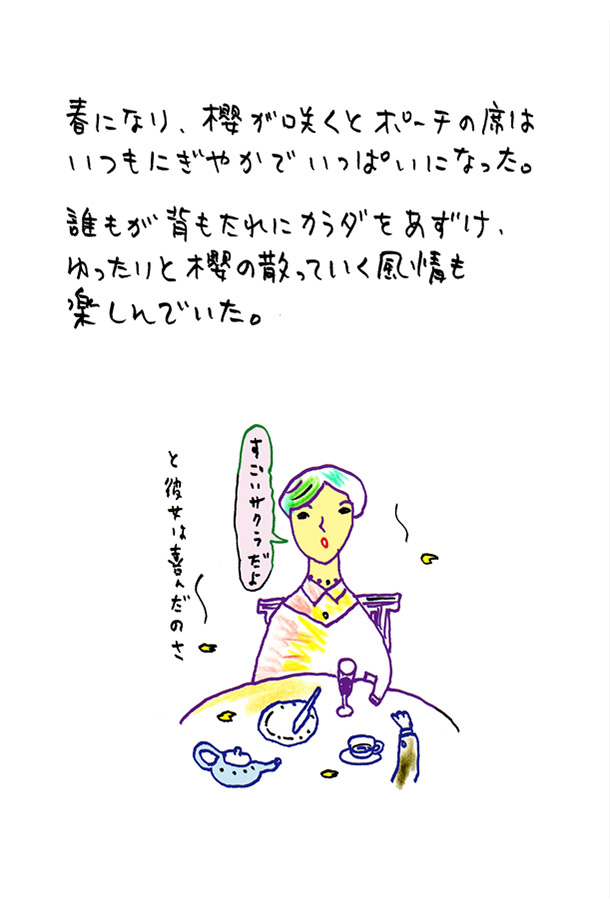 春になり、櫻が咲くとポーチの席は
いつもにぎやかでいっぱいになった。
誰もが背もたれにカラダをあずけ、
ゆったりと櫻の散っていく風情も
楽しんでいた。
すごいサクラだよ
と彼女は喜んだのさ